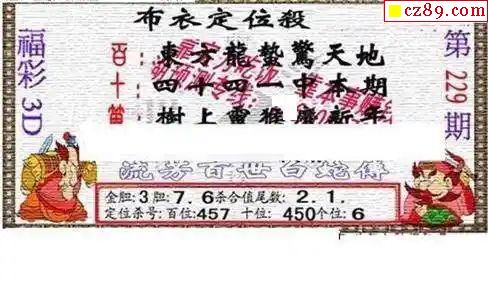 cz89.com
布衣定位殺
福彩3D
第229期
百：東方龍蟄驚天地
十：四十四一中本期
笛：樹上靈猴慶新年
流芳百世白蛇傳
金胆:3胆:7.6杀合值尾数:2.1.
定位杀号:百位:457 十位:450个位:6